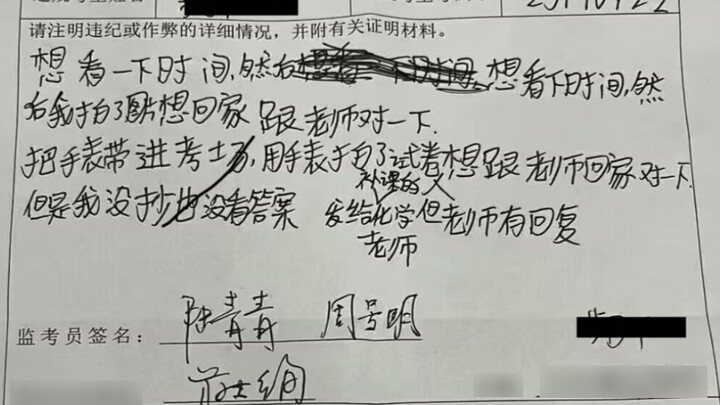 请注明违纪或作弊的详细情况，并附有关证明材料。
想看一下时间，然后 想看下时间，然
后我拍了图片想回家跟老师对一下.
把手表带进考场，用手表拍了试卷想跟老师回家对一下.
但是我没抄也没看答案 发给化学补课的老师但老师有回复
监考员签名： 陆青青 周号明